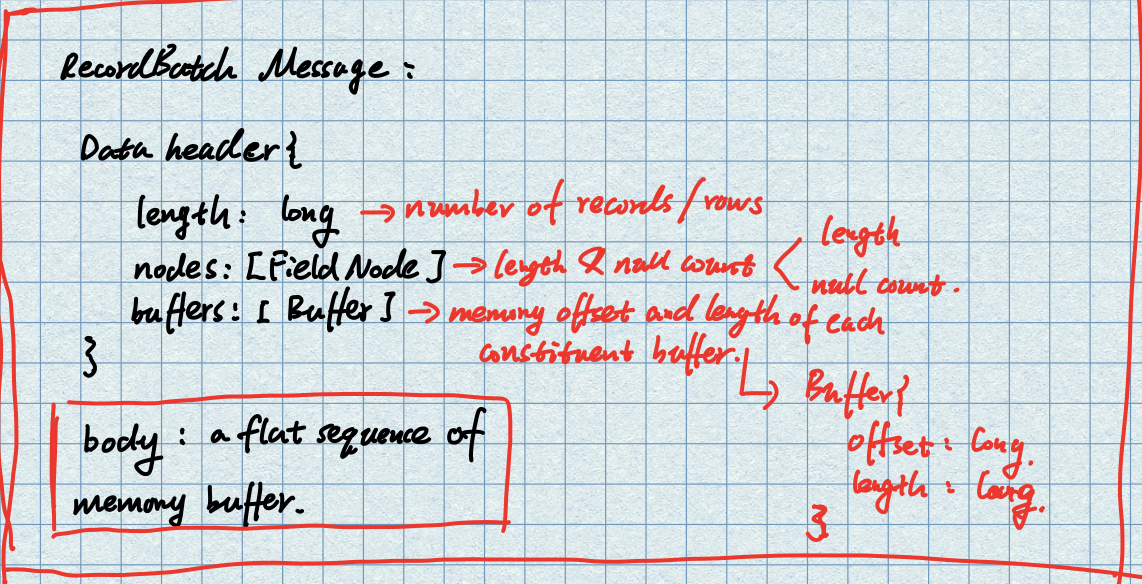 RecordBatch Message :
Data header {
length : long → number of records / rows
nodes : [FieldNode] → length & null count < length
null count .
buffers : [ Buffer ] → memory offset and length of each
constituent buffer.
}
Buffer {
offset : long.
length : long.
}
body : a flat sequence of
memory buffer.